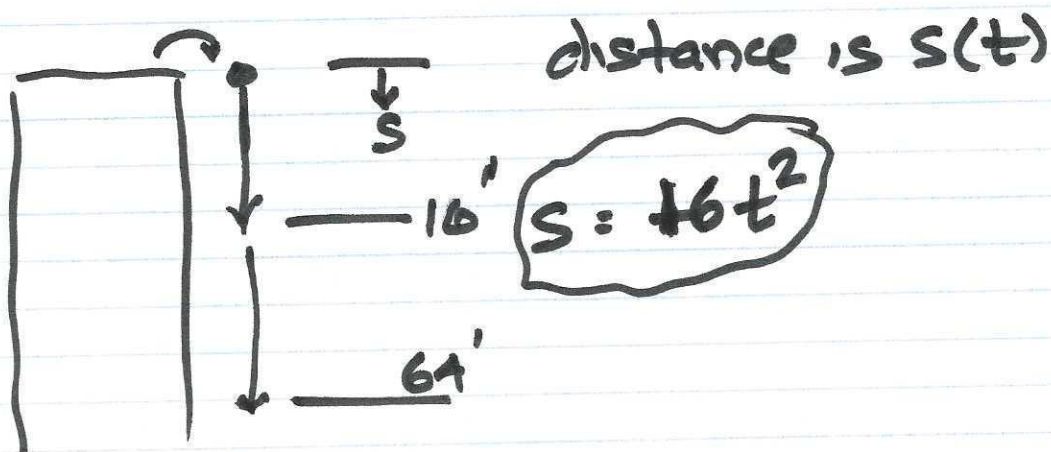 distance is s(t)
s
16'
s = 16t²
64'